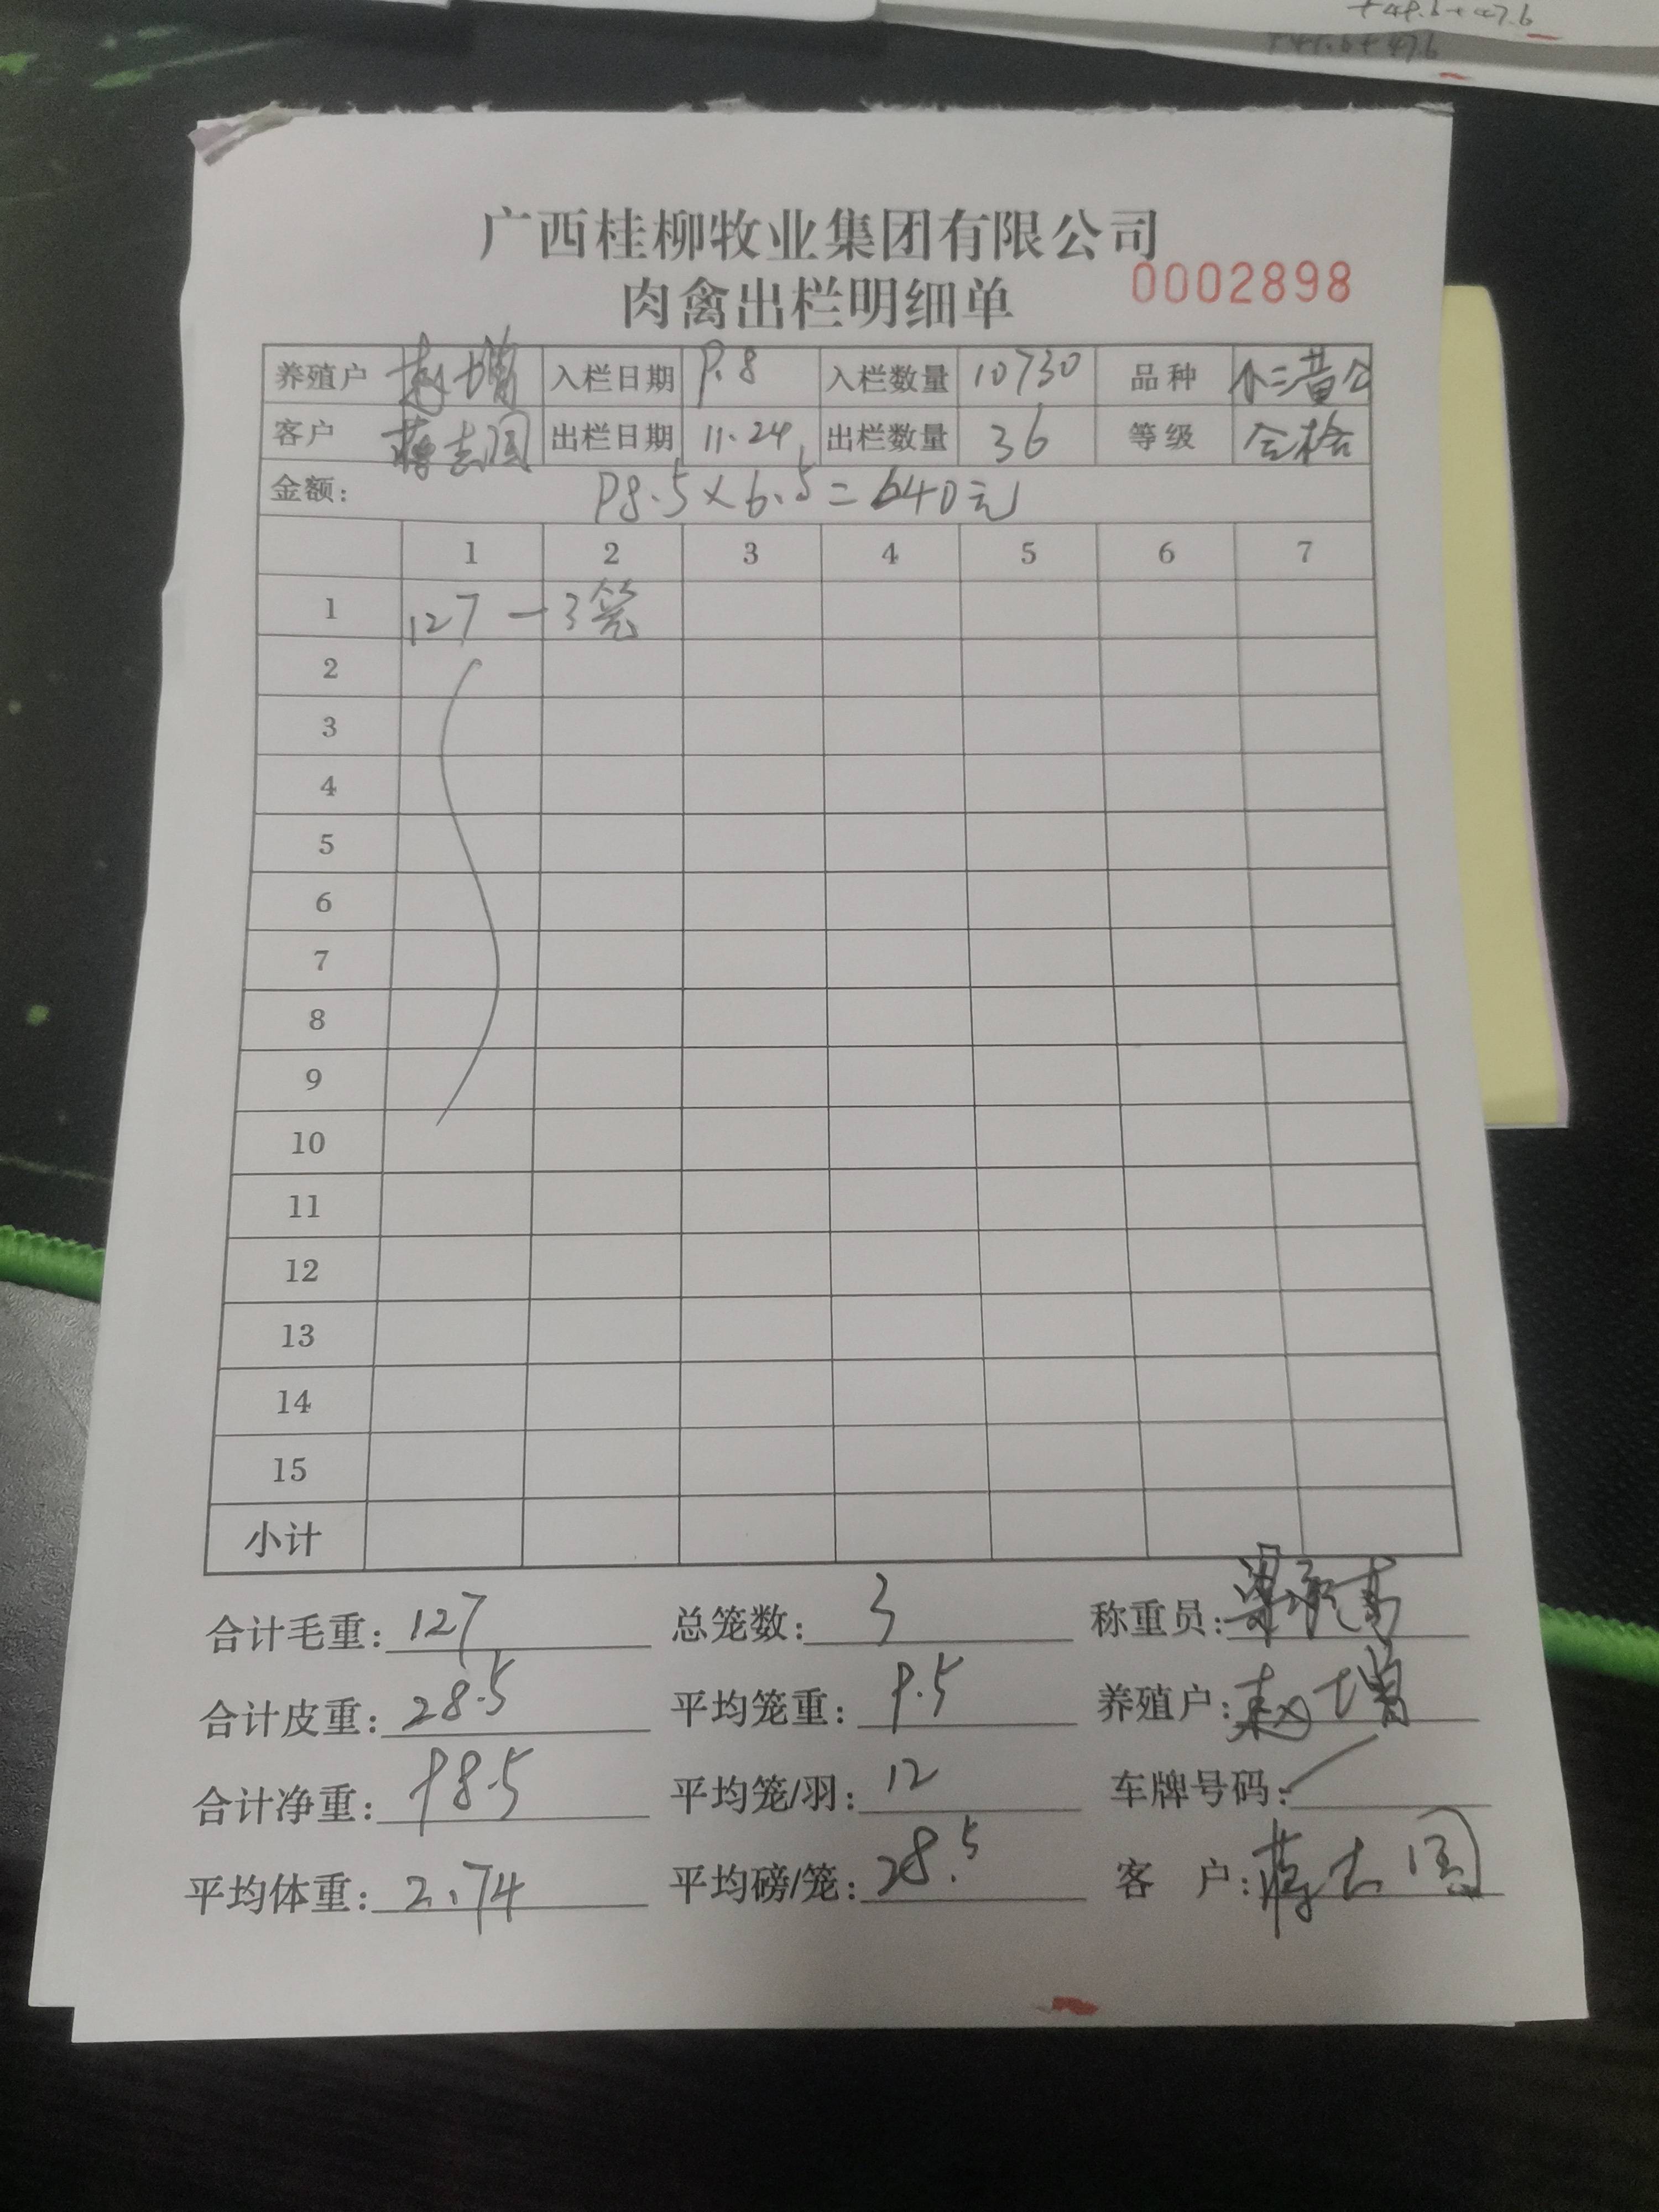 +48.6+47.6
+47.6+47.6
广西桂柳牧业集团有限公司
肉禽出栏明细单 0002898
养殖户 赵增 入栏日期 9.8 入栏数量 10730 品种 小三黄公
客户 蒋志国 出栏日期 11.24 出栏数量 36 等级 合格
金额: 98.5×6.5=640元
1 2 3 4 5 6 7
1 127 — 3笼
2
3
4
5
6
7
8
9
10
11
12
13
14
15
小计
合计毛重: 127 总笼数: 3 称重员:
合计皮重: 28.5 平均笼重: 9.5 养殖户: 赵增
合计净重: 98.5 平均笼/羽: 12 车牌号码: /
平均体重: 2.74 平均磅/笼: 28.5 客 户: 蒋志国